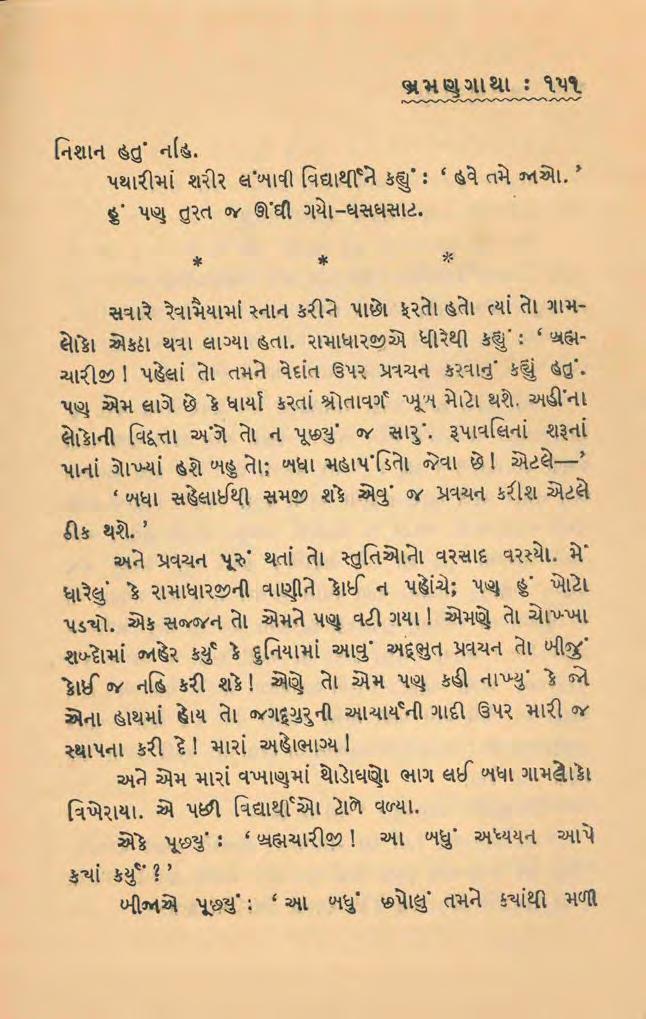 ભ્રમણગાથા : ૧૫૧
નિશાન હતું નહિ.
પથારીમાં શરીર લંબાવી વિદ્યાર્થીને કહ્યું : ‘ હવે તમે જાઓ. ’
હું પણ તુરત જ ઊંઘી ગયો–ઘસઘસાટ.
* * *
સવારે રેવામૈયામાં સ્નાન કરીને પાછો ફરતો હતો ત્યાં તો ગામ-
લોકો એકઠા થવા લાગ્યા હતા. રામાધારજીએ ધીરેથી કહ્યું : ‘ બ્રહ્મ-
ચારીજી ! પહેલાં તો તમને વેદાંત ઉપર પ્રવચન કરવાનું કહ્યું હતું.
પણ એમ લાગે છે કે ધાર્યા કરતાં શ્રોતાવર્ગ ખૂબ મોટો થશે. અહીંના
લોકોની વિદ્વત્તા અંગે તો ન પૂછ્યું જ સારું. રૂપાવલિનાં શરૂનાં
પાનાં ગોખ્યાં હશે બહુ તો; બધા મહાપંડિતો જેવા છે ! એટલે—’
‘ બધા સહેલાઈથી સમજી શકે એવું જ પ્રવચન કરીશ એટલે
ઠીક થશે. ’
અને પ્રવચન પૂરું થતાં તો સ્તુતિઓનો વરસાદ વરસ્યો. મેં
ધારેલું કે રામાધારજીની વાણીને કોઈ ન પહોંચે; પણ હું ખોટો
પડ્યો. એક સજ્જન તો એમને પણ વટી ગયા ! એમણે તો ચોખ્ખા
શબ્દોમાં જાહેર કર્યું કે દુનિયામાં આવું અદ્ભુત પ્રવચન તો બીજું
કોઈ જ નહિ કરી શકે ! એણે તો એમ પણ કહી નાખ્યું કે જો
એના હાથમાં હોય તો જગદ્ગુરુની આચાર્યની ગાદી ઉપર મારી જ
સ્થાપના કરી દે ! મારાં અહોભાગ્ય !
અને એમ મારાં વખાણમાં થોડોઘણો ભાગ લઈ બધા ગામલોકો
વિખેરાયા. એ પછી વિદ્યાર્થીઓ ટોળે વળ્યા.
એકે પૂછ્યું : ‘ બ્રહ્મચારીજી ! આ બધું અધ્યયન આપે
ક્યાં કર્યું ? ’
બીજાએ પૂછ્યું : ‘ આ બધું છપેલું તમને ક્યાંથી મળી